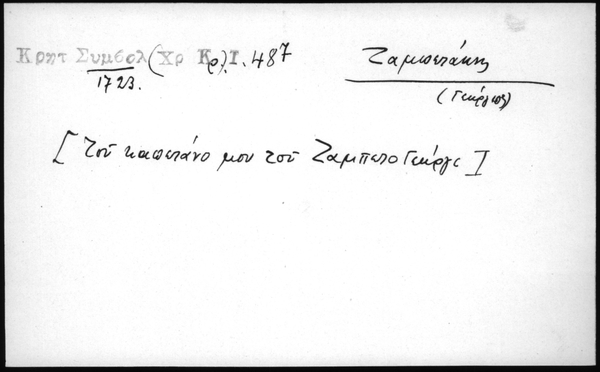 Κρητ Συμβολ (Χρ Κρ) Ι. 487
1723.
Ζαμπετάκης
(Γεώργιος)
[ Τοῦ καπετάνο μου τοῦ Ζαμπετο Γεώργε ]